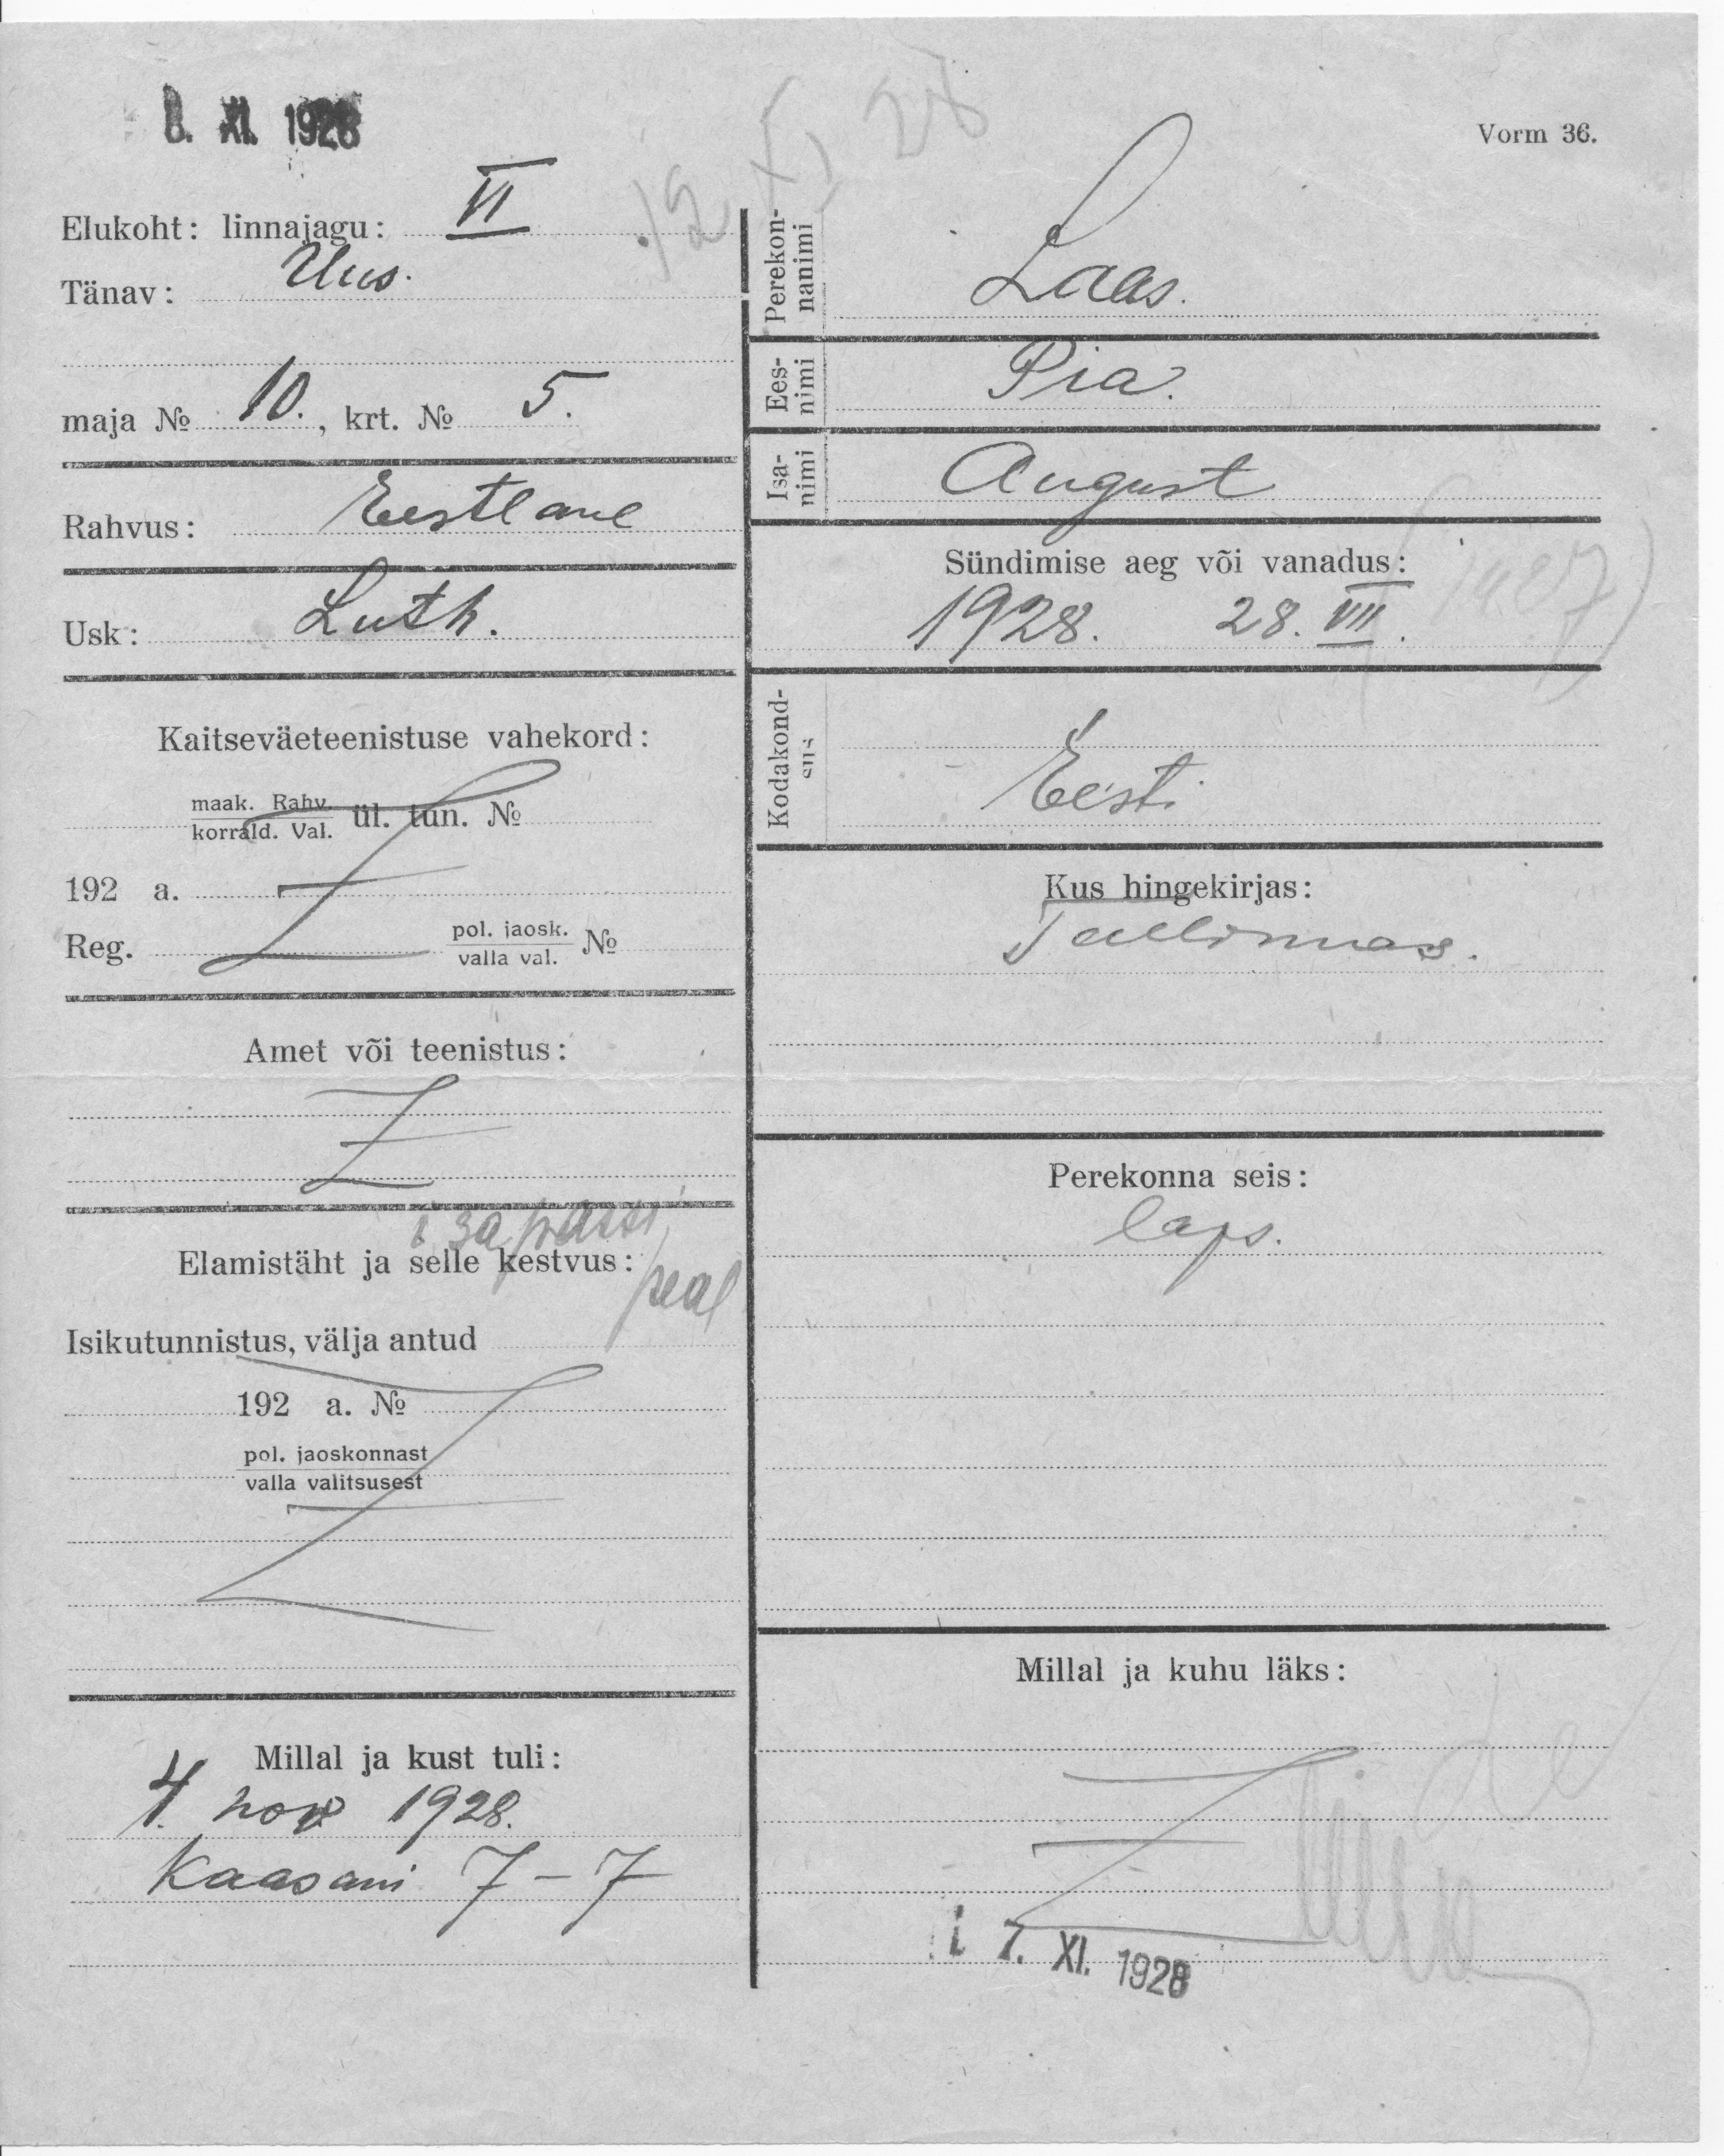 8. XI. 1928
12 XI 28
Vorm 36.
Elukoht: linnajagu: VI
Tänav: Uus.
maja № 10., krt. № 5.
Rahvus: Eestlane
Usk: Luth.
Kaitseväeteenistuse vahekord:
maak. Rahv.
korrald. Val. ül. tun. №
192 a.
Reg. pol. jaosk. №
valla val.
Amet või teenistus:
isa passi
peal
Elamistäht ja selle kestvus:
Isikutunnistus, välja antud
192 a. №
pol. jaoskonnast
valla valitsusest
Millal ja kust tuli:
4. nov 1928.
Kaasani 7-7
Perekon-
nanimi
Laas.
Ees-
nimi
Pia.
Isa-
nimi
August
Sündimise aeg või vanadus:
(1927)
1928. 28. VII.
Kodakond-
sus
Eesti
Kus hingekirjas:
Tallinnas.
Perekonna seis:
laps.
Millal ja kuhu läks:
7. XI. 1928